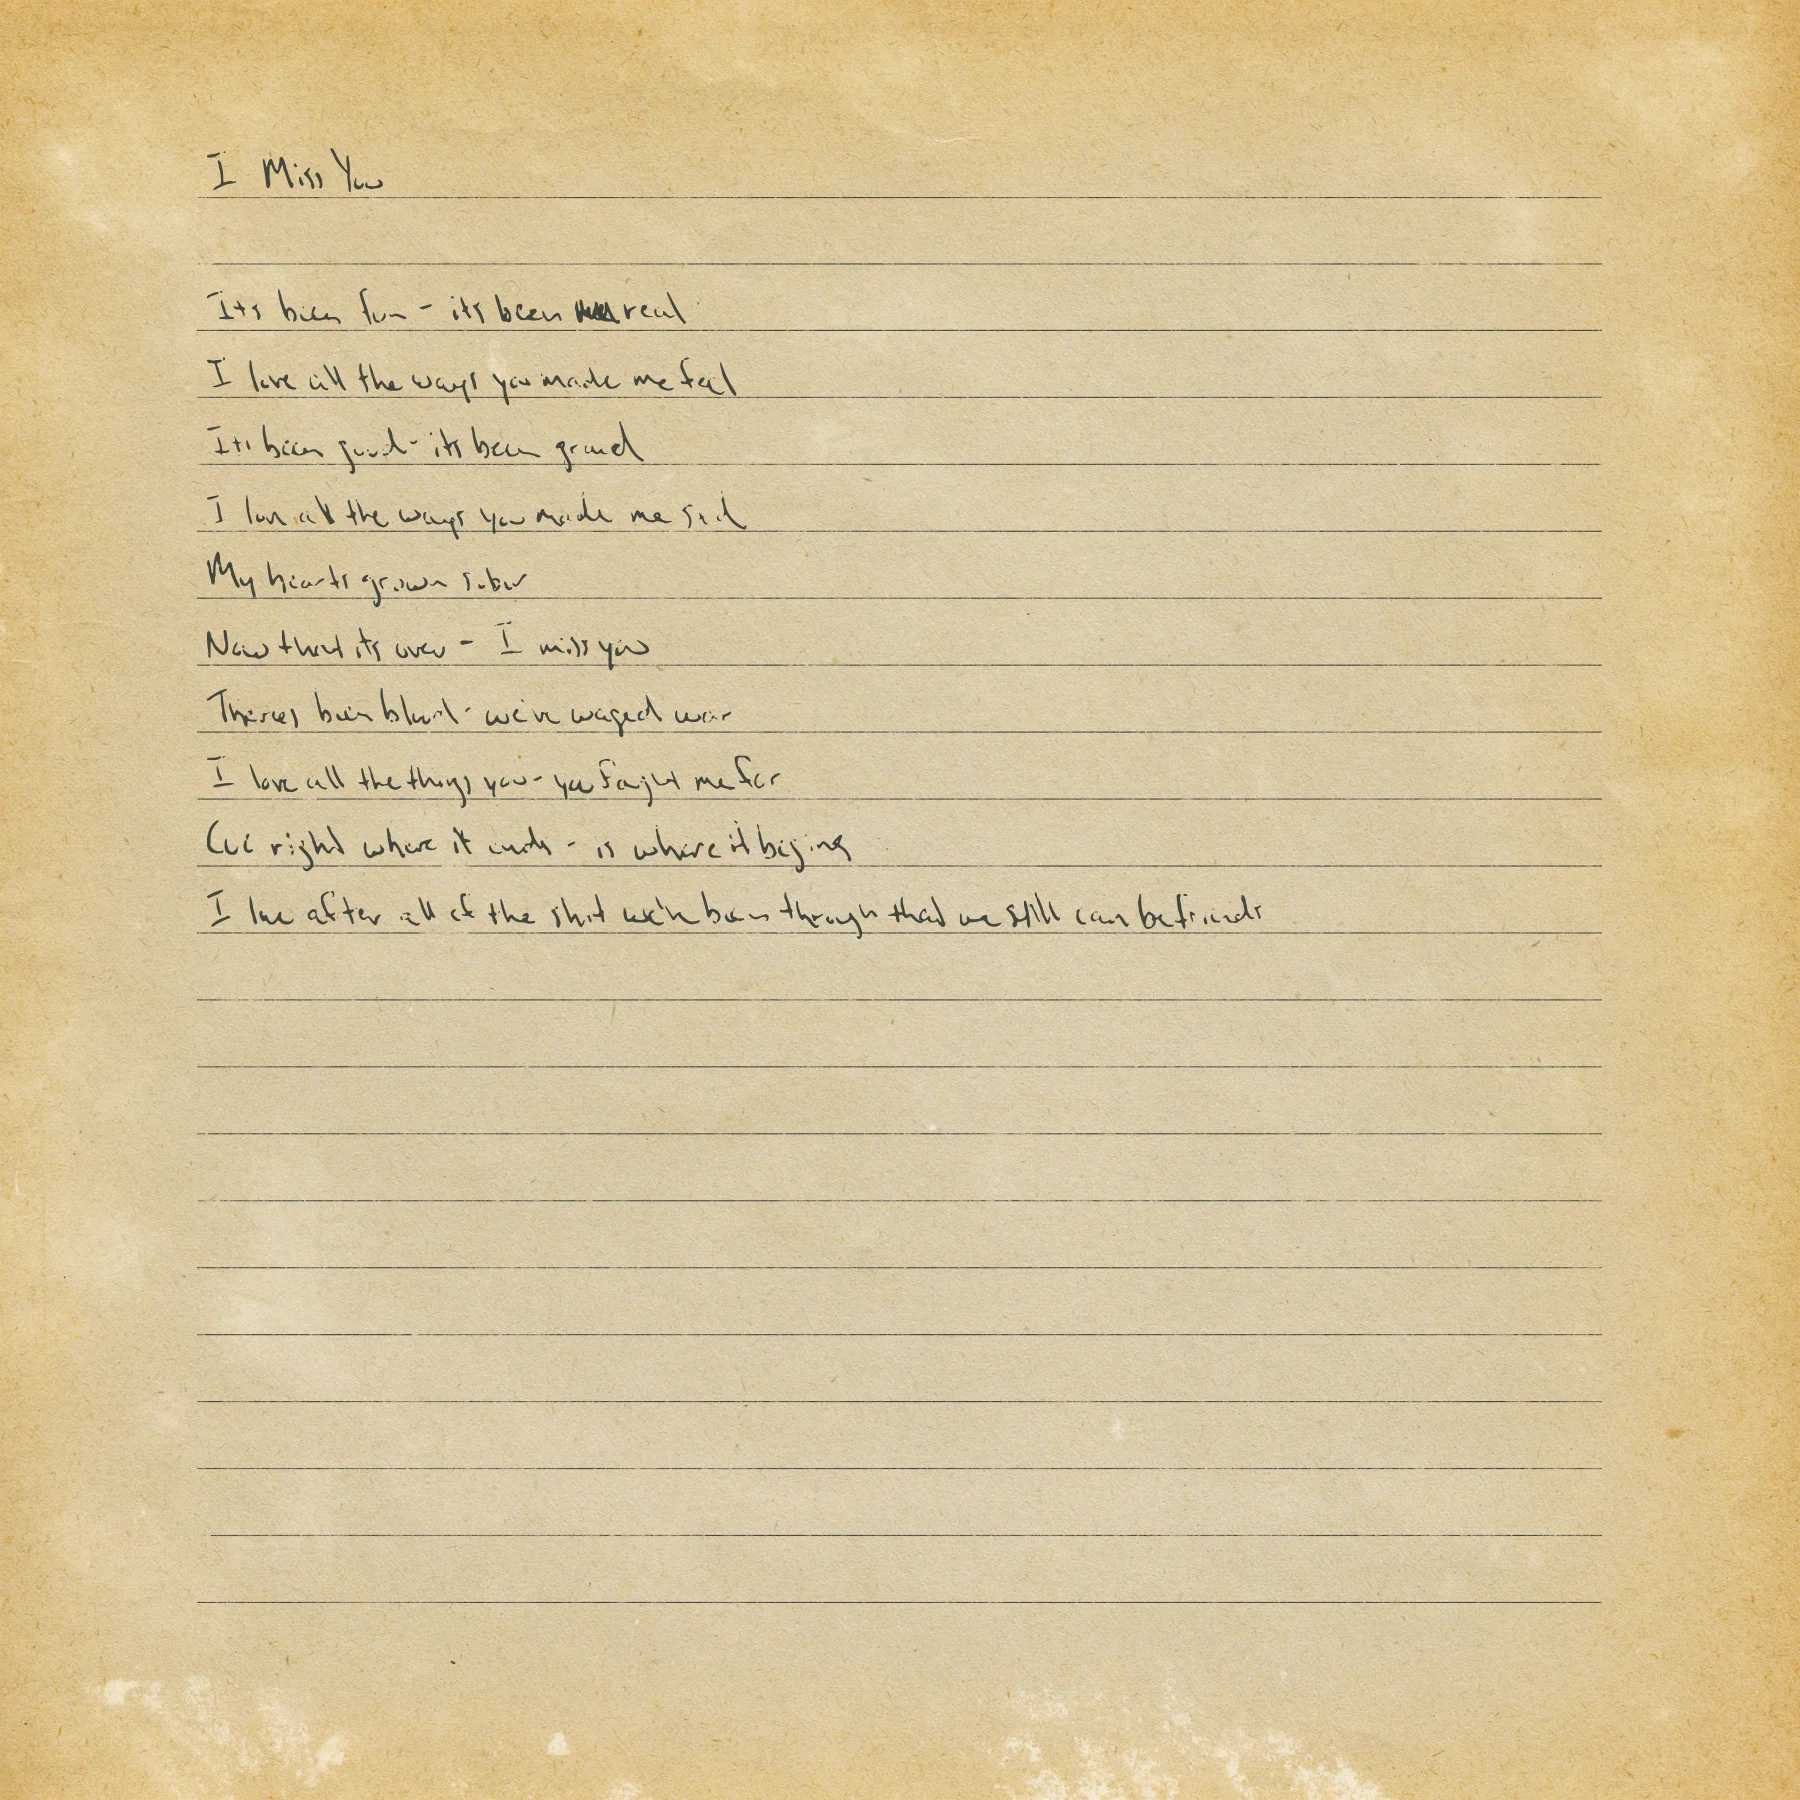 I Miss You
Its been fun - its been real
I love all the ways you made me feel
Its been good - its been grand
I love all the ways you made me sad
My hearts grown sober
Now that its over - I miss you
Theres been blood - we've waged war
I love all the things you - you faught me for
Cuz right where it ends - is where it begins
I love after all of the shit we've been through that we still can be friends